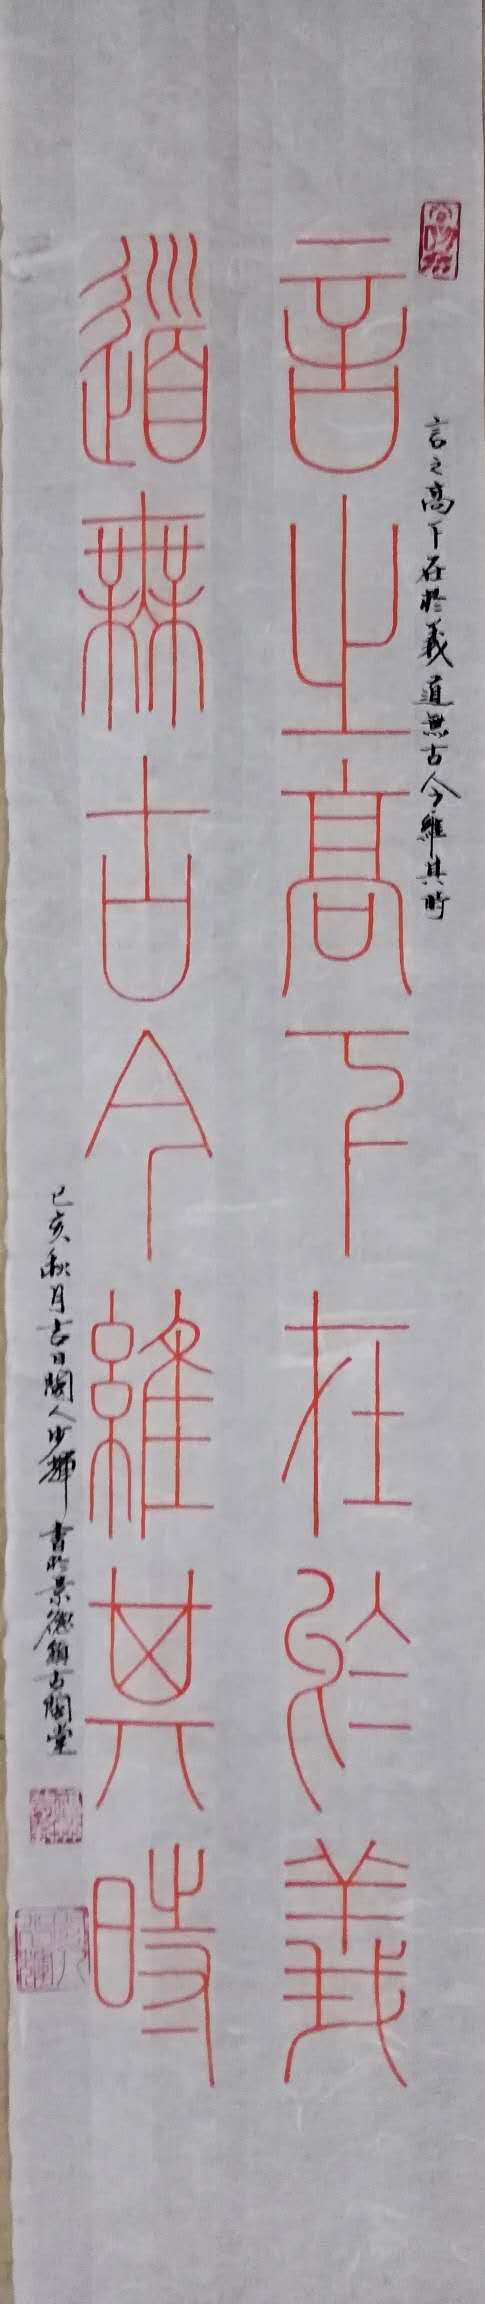 言之高下在於義
道無古今維其時
言之高下在於義道無古今維其時
己亥秋月吉日閩人少輝書於景德鎮古閩堂